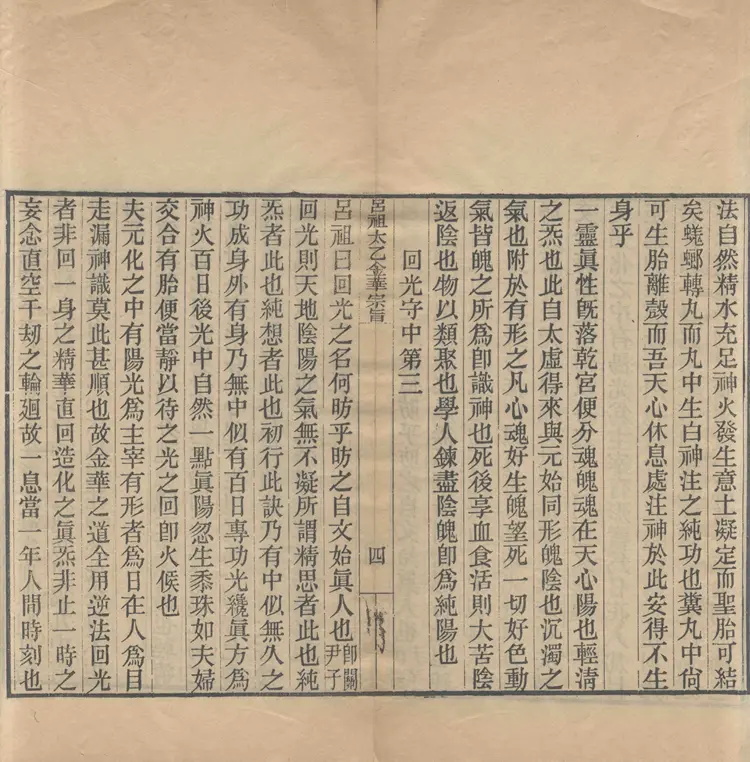 法自然精水充足神火發生意土凝定而聖胎可結
矣蜣螂轉丸而丸中生白神注之純功也糞丸中尙
可生胎離殼而吾天心休息處注神於此安得不生
身乎
一靈眞性旣落乾宮便分魂魄魂在天心陽也輕淸
之炁也此自太虛得來與元始同形魄陰也沉濁之
氣也附於有形之凡心魂好生魄望死一切好色動
氣皆魄之所爲卽識神也死後享血食活則大苦陰
返陰也物以類聚也學人鍊盡陰魄卽爲純陽也
回光守中第三
呂祖太乙金華宗旨
四
呂祖曰回光之名何昉乎昉之自文始眞人也卽關尹子
回光則天地陰陽之氣無不凝所謂精思者此也純
炁者此也純想者此也初行此訣乃有中似無久之
功成身外有身乃無中似有百日專功光纔眞方爲
神火百日後光中自然一點眞陽忽生黍珠如夫婦
交合有胎便當靜以待之光之回卽火候也
夫元化之中有陽光爲主宰有形者爲日在人爲目
走漏神識莫此甚順也故金華之道全用逆法回光
者非回一身之精華直回造化之眞炁非止一時之
妄念直空千刼之輪廻故一息當一年人間時刻也